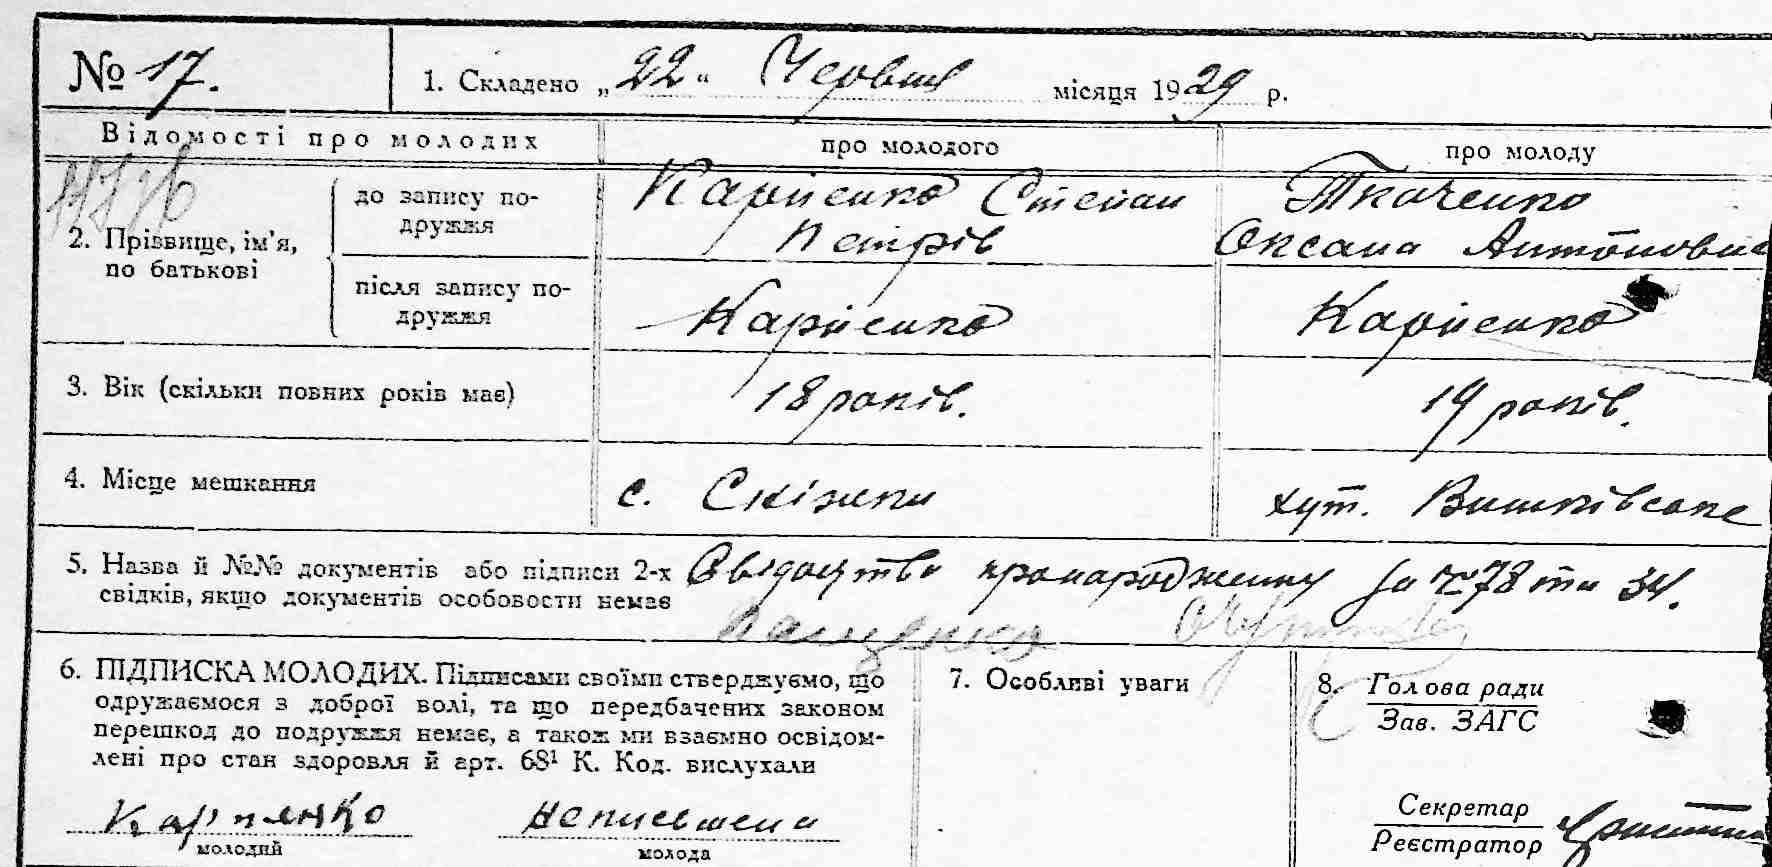 № 17.
1. Складено „22“ Червня місяця 1929 р.
Відомості про молодих
про молодого
про молоду
2. Прізвище, ім'я, по батькові
до запису подружжя
Карпенко Степан
Петрів
Ткаченко
Оксана Антоновна
після запису подружжя
Карпенко
Карпенко
3. Вік (скільки повних років має)
18 років.
19 років.
4. Місце мешкання
с. Скізики
хут. Вишківське
5. Назва й №№ документів або підписи 2-х
свідків, якщо документів особовости немає
Свідоцтва про народження за № 78 та 34.
6. ПІДПИСКА МОЛОДИХ. Підписами своїми стверджуємо, що
одружаємося з доброї волі, та що передбачених законом
перешкод до подружжя немає, а також ми взаємно освідом-
лені про стан здоровля й арт. 68¹ К. Код. вислухали
Карпенко
молодий
неписьмена
молода
7. Особливі уваги
8. Голова ради
Зав. ЗАГС
Секретар
Реєстратор